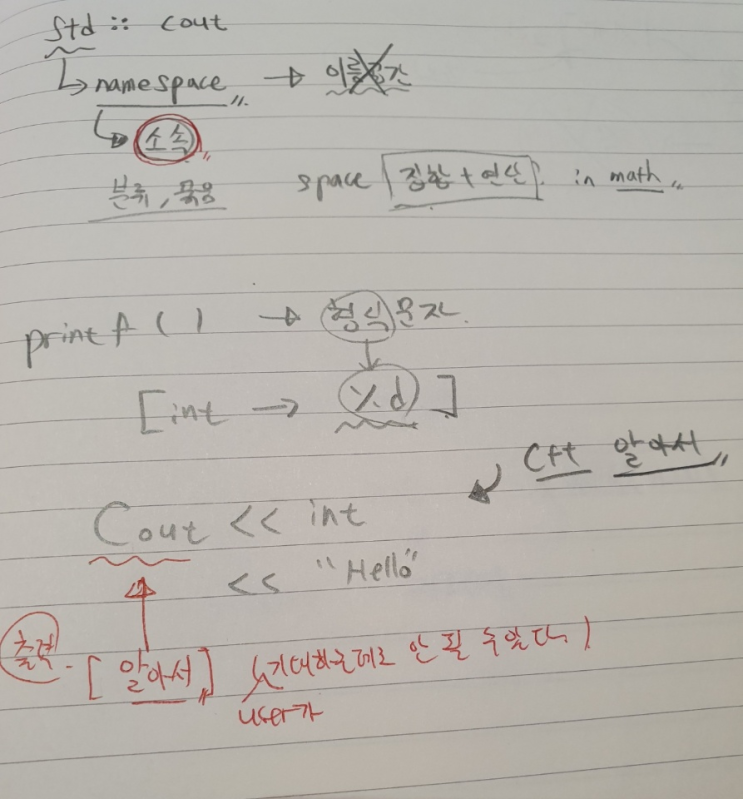 std :: cout
↳ namespace → 이름공간
↳ 소속
분류, 묶음 space 집합 + 연산 in math
printf ( ) → 형식문자.
[int → %d]
C++ 알아서
Cout << int
<< "Hello"
출력. [알아서] (기대하는데로 안 될 수 있다.)
user가